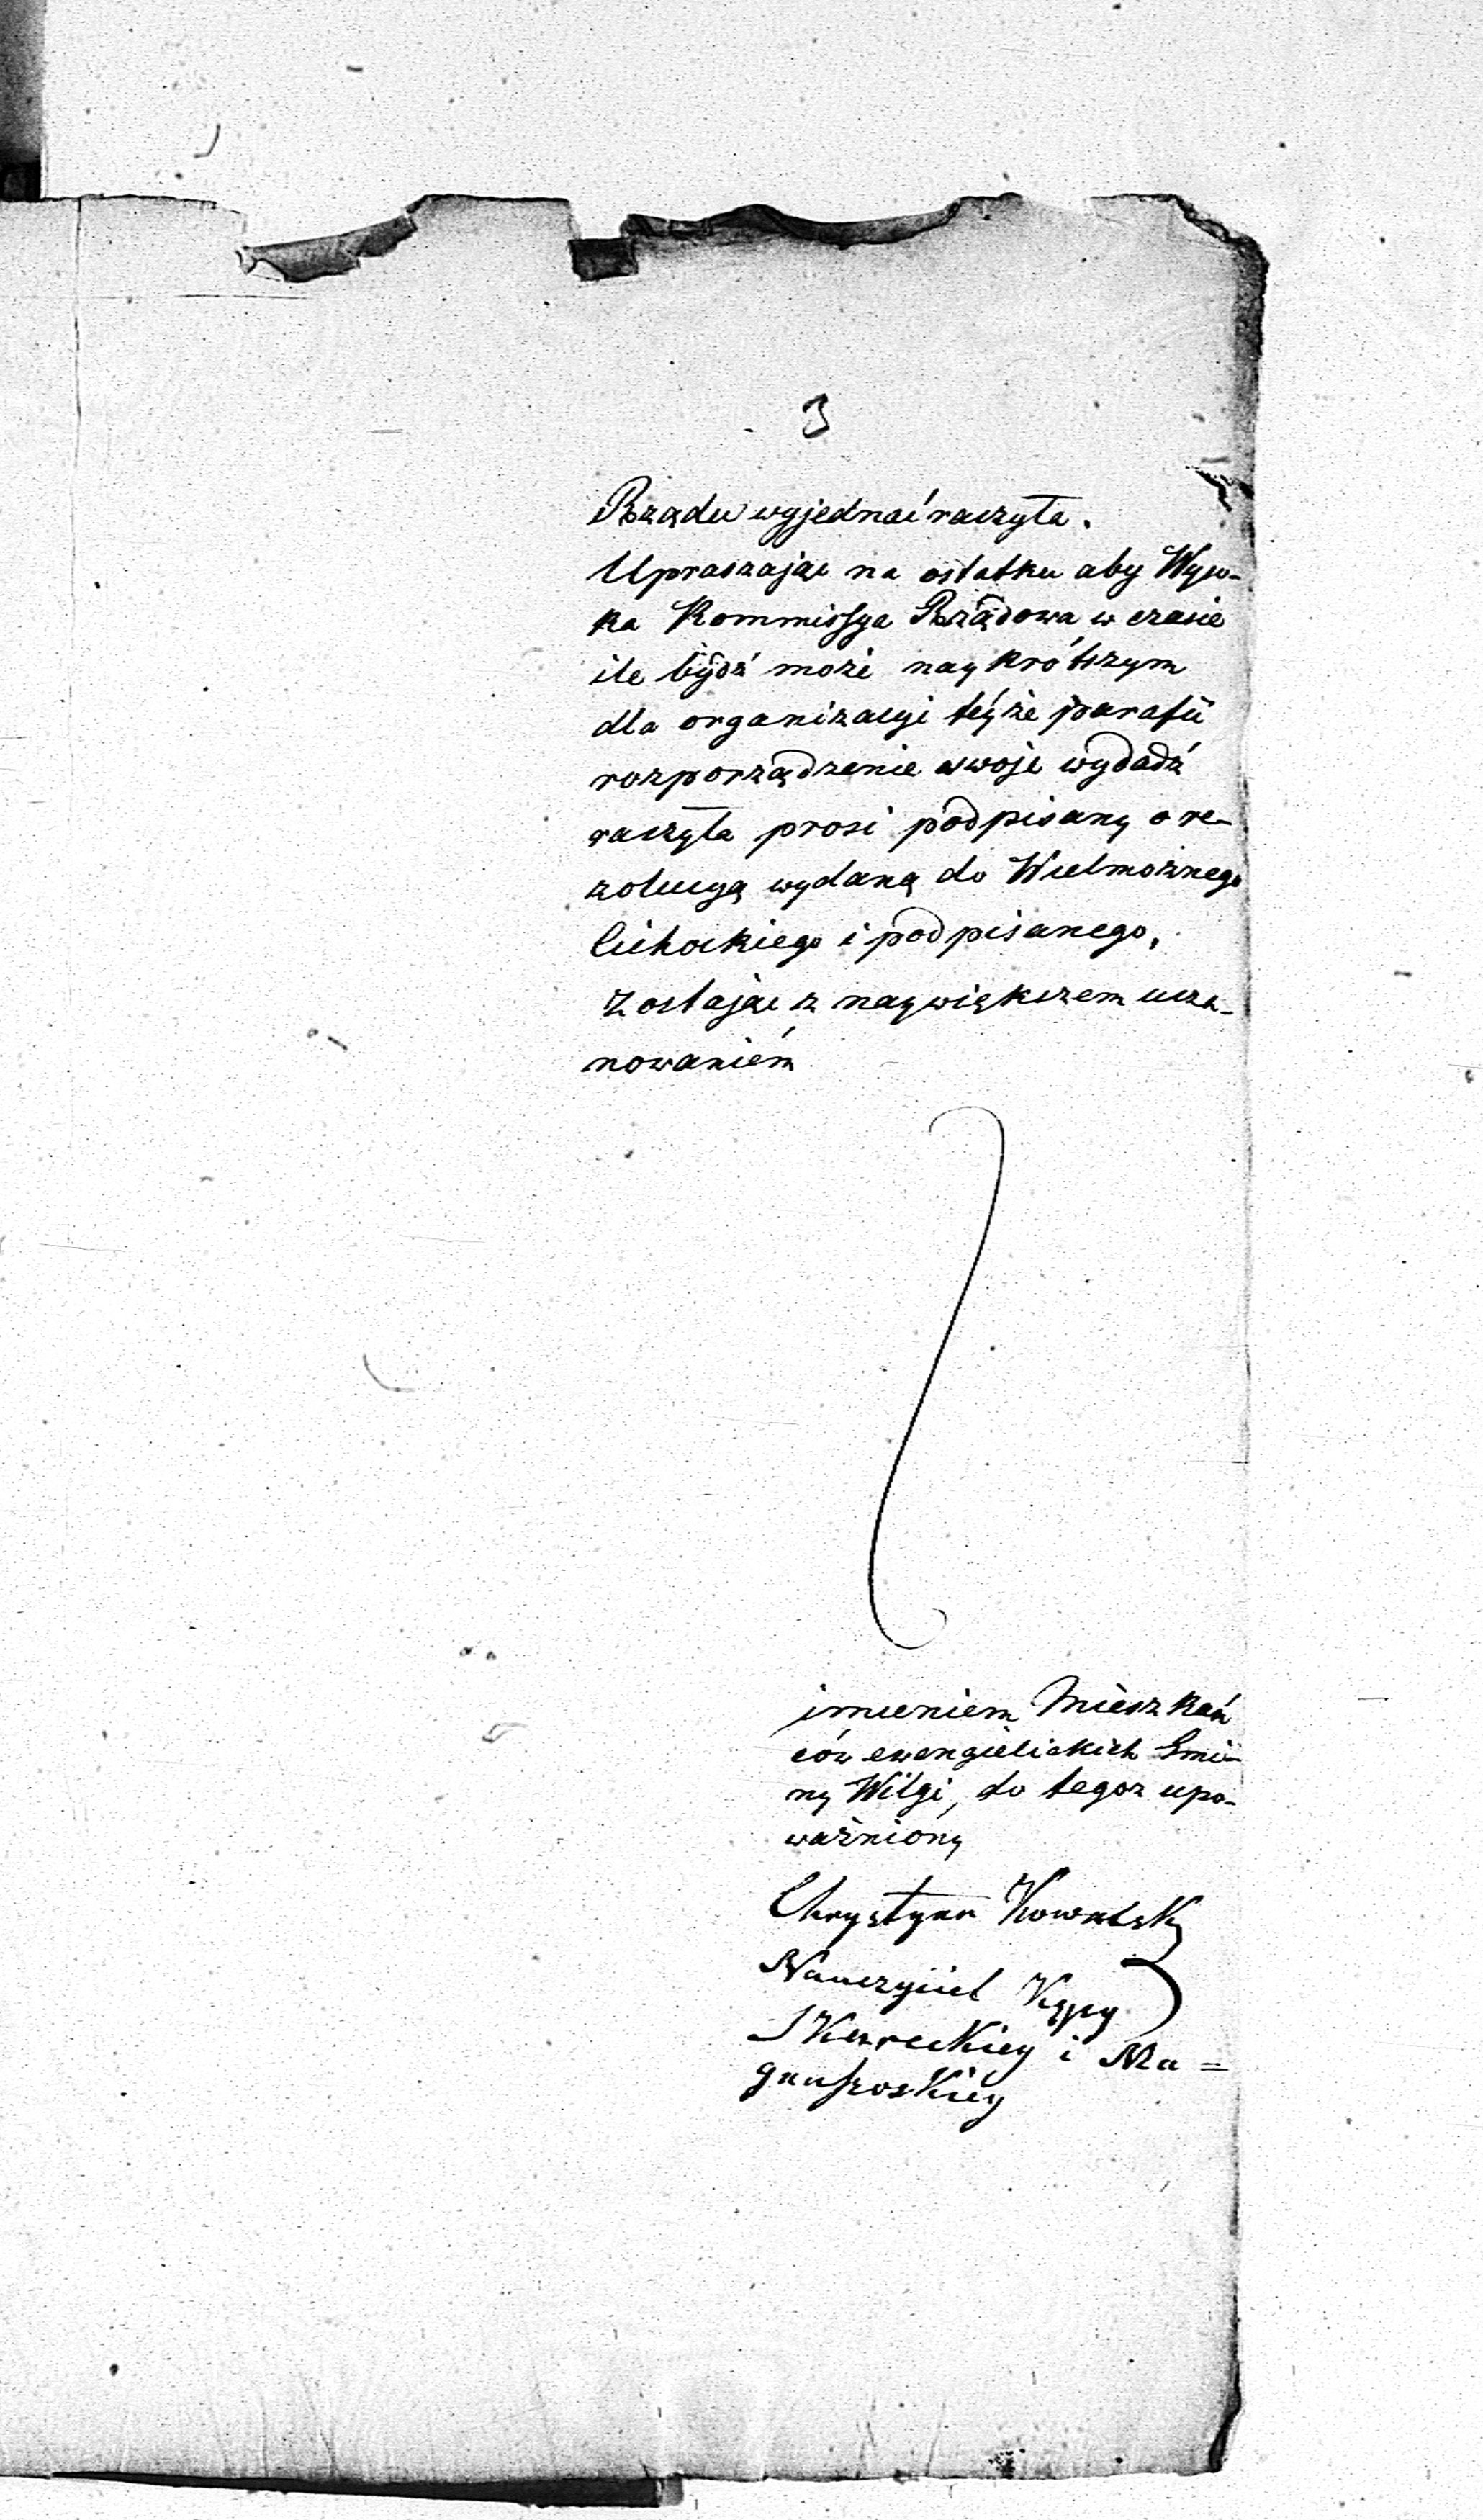 3
Rządu wyjednać raczyła.
Upraszając na ostatku aby Wyso-
ka Kommissya Rządowa w czasie
ile bydź może naykrótszym
dla organizacyi téyże parafii
rozporządzenie swoje wydadź
raczyła prosi podpisany o re-
zolucyą wydaną do Wielmożnego
Cichockiego i podpisanego,
Zostając z naywiększem usza-
nowaniem
imieniem Mieszkań
ców ewengielickich Gmi-
ny Wilgi, do tegoz upo-
ważniony
Chrystyan Kowalsky
Nauczyciel Kępy
i Ma=